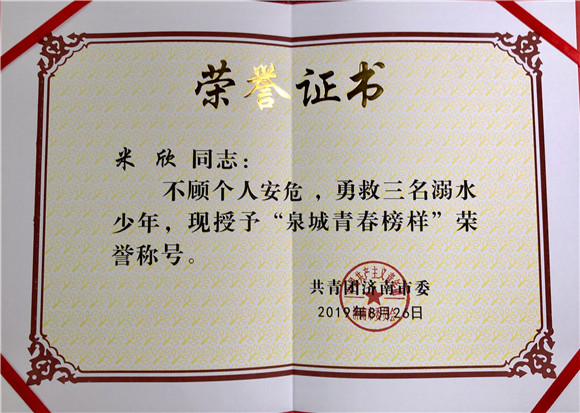 荣誉证书
米 欣 同志：
不顾个人安危，勇救三名溺水
少年，现授予“泉城青春榜样”荣
誉称号。
共青团济南市委
2019年8月26日